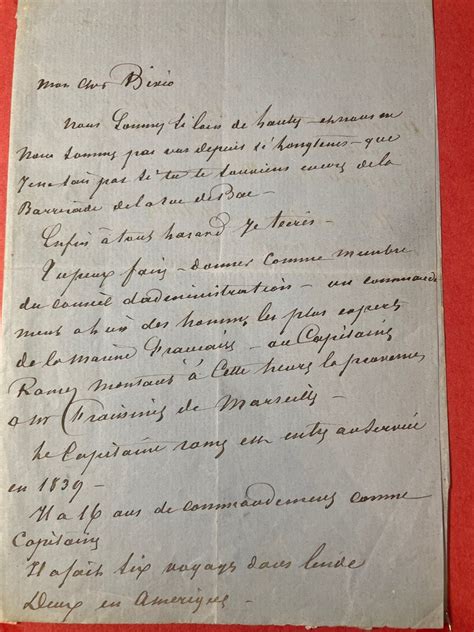 mon cher Bixio
Nous sommes si loin de hauty et nous ne
nous sommes pas vus depuis si longtemps que
je ne sais pas si tu te souviens encore de la
Barricade de la rue de Bac
Enfin à tout hazard je t'ecris
Tu peux faire donner comme membre
du conseil d'administration un commande
ment a l'un des hommes les plus experts
de la Marine Francaise au Capitaine
Ramey montant à cette heure la provence
a Mr Fraisinis de Marseille
Le Capitaine ramey est entré au service
en 1839
Il a 16 ans de commandement comme
Capitaine
Il a fait six voyages dans l'inde
Deux en Amerique